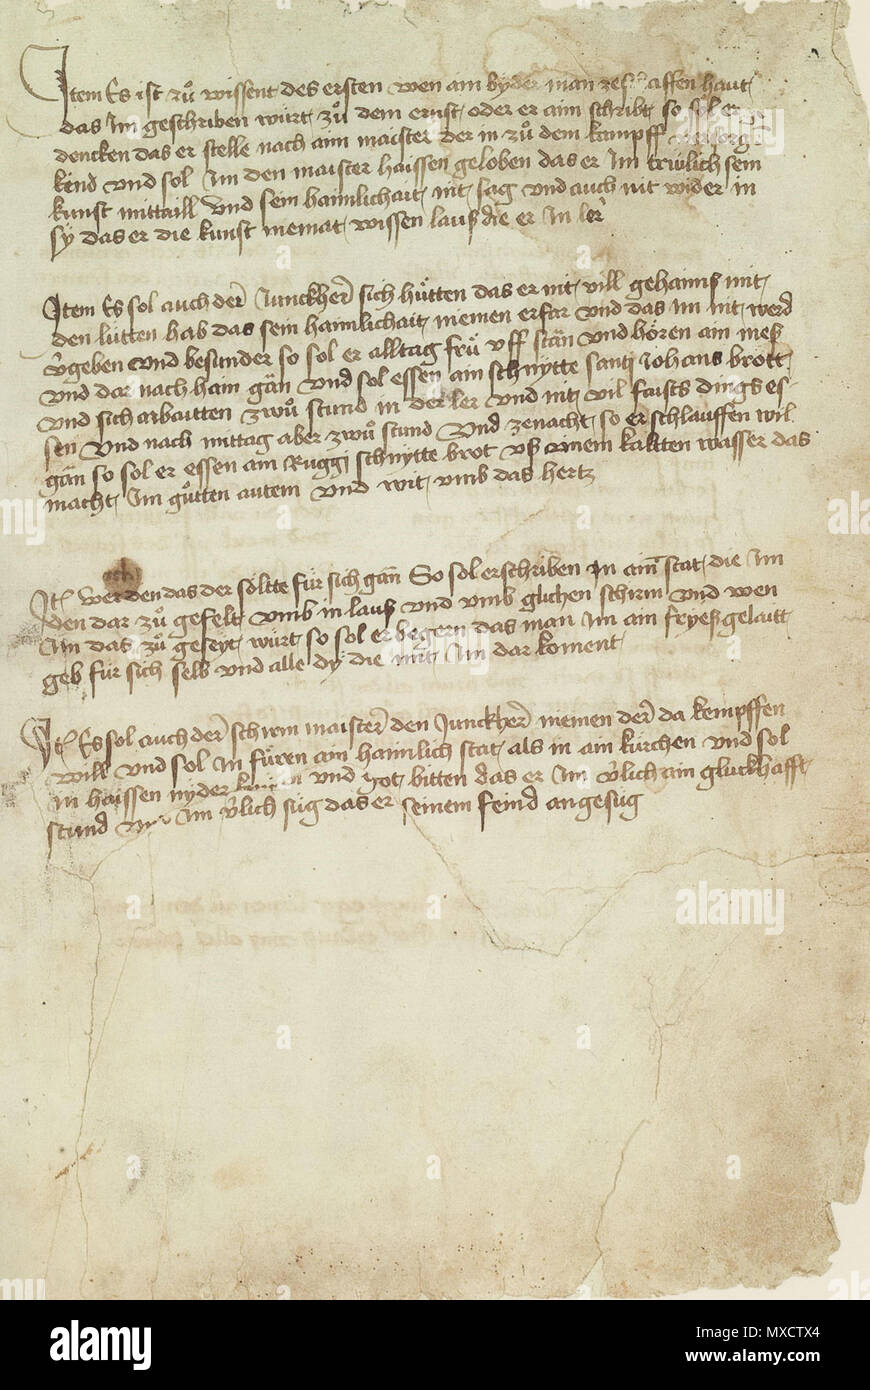 Item Es ist zuͦ wissent des ersten wen ain byder man ze schaffen haut
das Im geschriben würt zuͦ dem ernst oder er aim schribt so sol er
dencken das er stelle nach aim maister der in zuͦ dem kampff
kend vnd sol Im den maister haissen geloben das er Im trwlich sein
kunst mittaill vnd sein haimlichait nit sag vnd auch nit wider in
sy das er die kunst niemat wissen lauß die er In ler
Item Es sol auch der Junckherr sich hüͤtten das er nit vill gehaimß mit
den lütten hab das sein haimlichait niemen erfar vnd das Im nit werd
v̄geben vnd besunder so sol er alltag fruͤ vff stän vnd hören ain meß
vnd dar nach haim gän vnd sol essen ain schnytte santi Johans brott
vnd sich arbaitten zwuͦ stund in der ler vnd nit vil faists dings es
sen vnd nach mittag aber zwuͦ stund vnd zenacht so er schlauffen wil
gän so sol er essen ain Ruggi schnytte brot vß ainem kaltten wasser das
macht Im guͦtten autem vnd wit vmb das hertz
It̄ werden das der söltte für sich gän So sol er schriben in ain stat die Im
den dar zuͦ gefelt vmb in lauß vnd vmb glichen schirm vnd wen
Im das zuͦ geseyt würt so sol er begern das man Im ain fryeß gelaitt
geb für sich selb vnd alle dy die mit Im dar koment
It̄ Es sol auch der schirm maister den Junckherr niemen der da kempffen
will vnd sol In fuͤren ain haimlich stat als in ain kirchen vnd sol
in haissen nyder knüen vnd got bitten das er Im v̄lich ain gluckhafft
stund vnd Im v̄lich sig das er seinem feind angesug
alamy
a
alamy
Image ID: MXCTX4
www.alamy.com